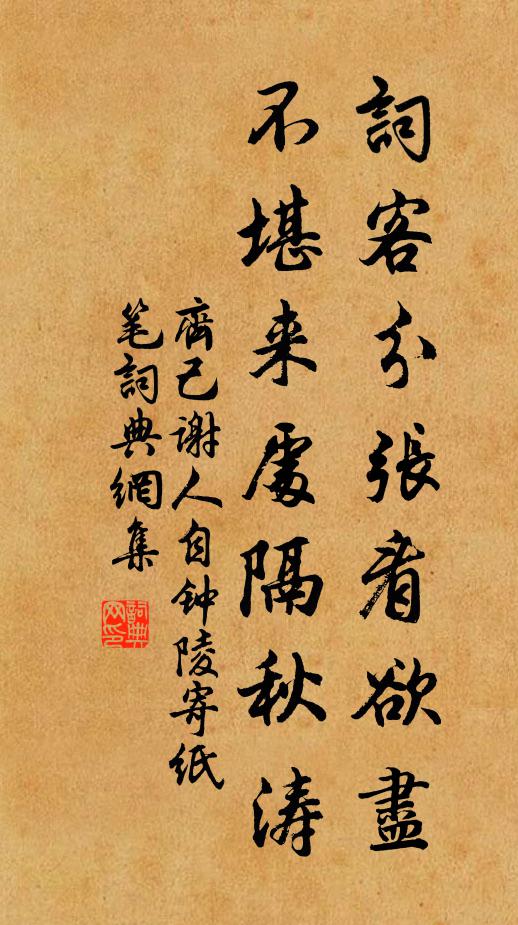 詞客分張看欲盡
不堪来處隔秋涛
齊己谢人自钟陵寄紙
笔詞典網集
詞典
网印